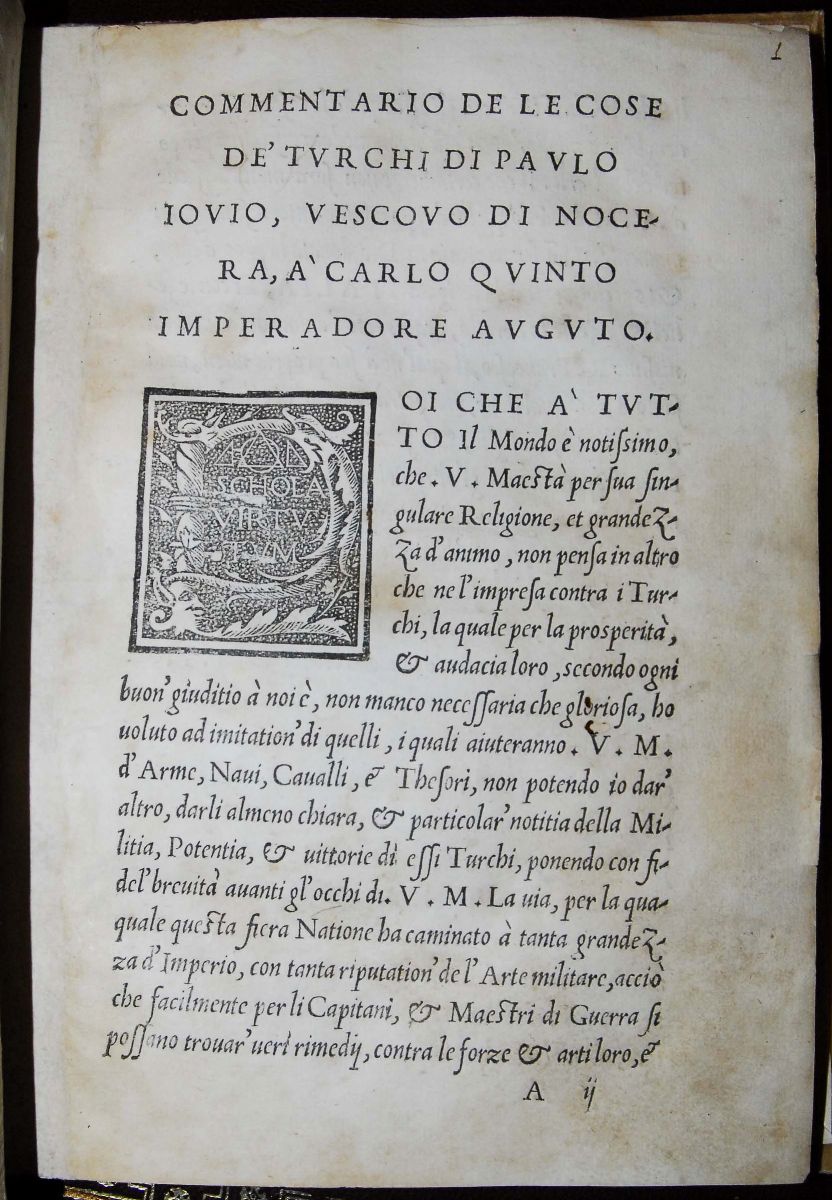 1
COMMENTARIO DE LE COSE
DE' TVRCHI DI PAVLO
IOVIO, VESCOVO DI NOCE-
RA, A` CARLO QVINTO
IMPERADORE AVGVTO.
SCHOLA
VIRTV
TVM
OI CHE A` TVT-
TO Il Mondo è notiſsimo,
che . V . Maeſtà per ſua ſin-
gulare Religione, et grandez-
za d'animo, non penſa in altro
che ne l'impreſa contra i Tur-
chi, la quale per la proſperità,
& audacia loro, ſecondo ogni
buon' giuditio à noi è, non manco neceſſaria che glorioſa, ho
uoluto ad imitation' di quelli, i quali aiuteranno . V . M .
d'Arme, Naui, Caualli, & Theſori, non potendo io dar'
altro, darli almeno chiara, & particolar' notitia della Mi-
litia, Potentia, & uittorie di eſſi Turchi, ponendo con fi-
del' breuità auanti gl'occhi di . V . M . La uia, per la qua-
quale queſta fiera Natione ha caminato à tanta grandez-
za d'Imperio, con tanta riputation' de l'Arte militare, acciò
che facilmente per li Capitani, & Maeſtri di Guerra ſi
poſſano trouar' ueri rimedij, contra le forze & arti loro, &
A ij